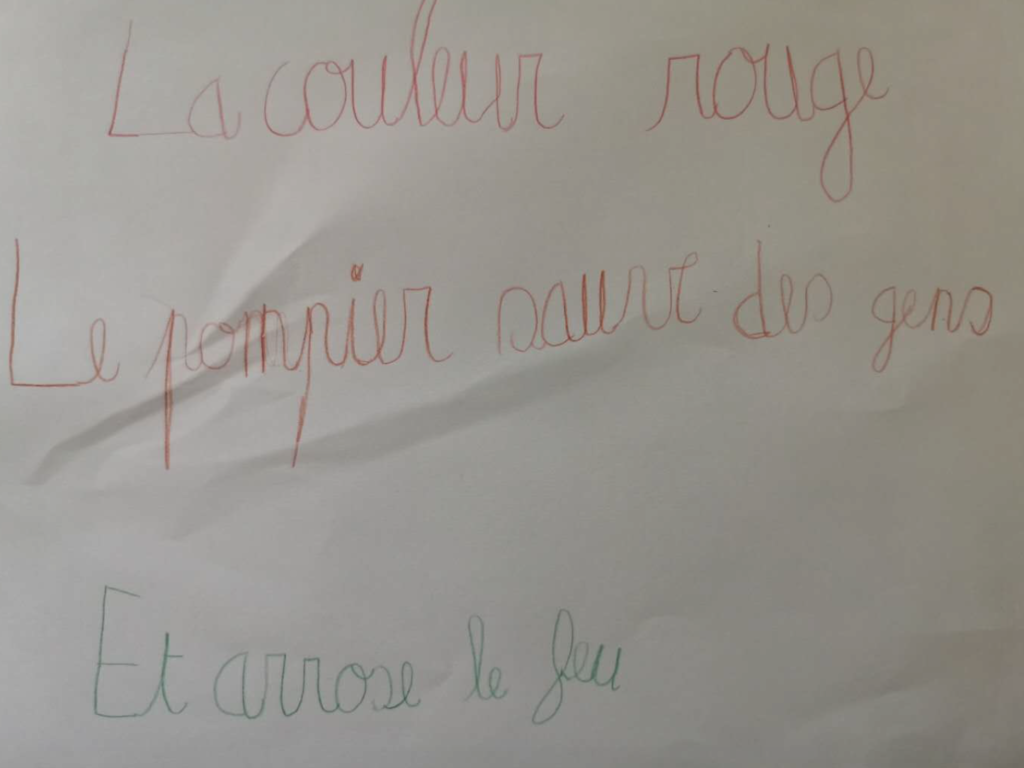 La couleur rouge
Le pompier sauve des gens
Et arrose le feu